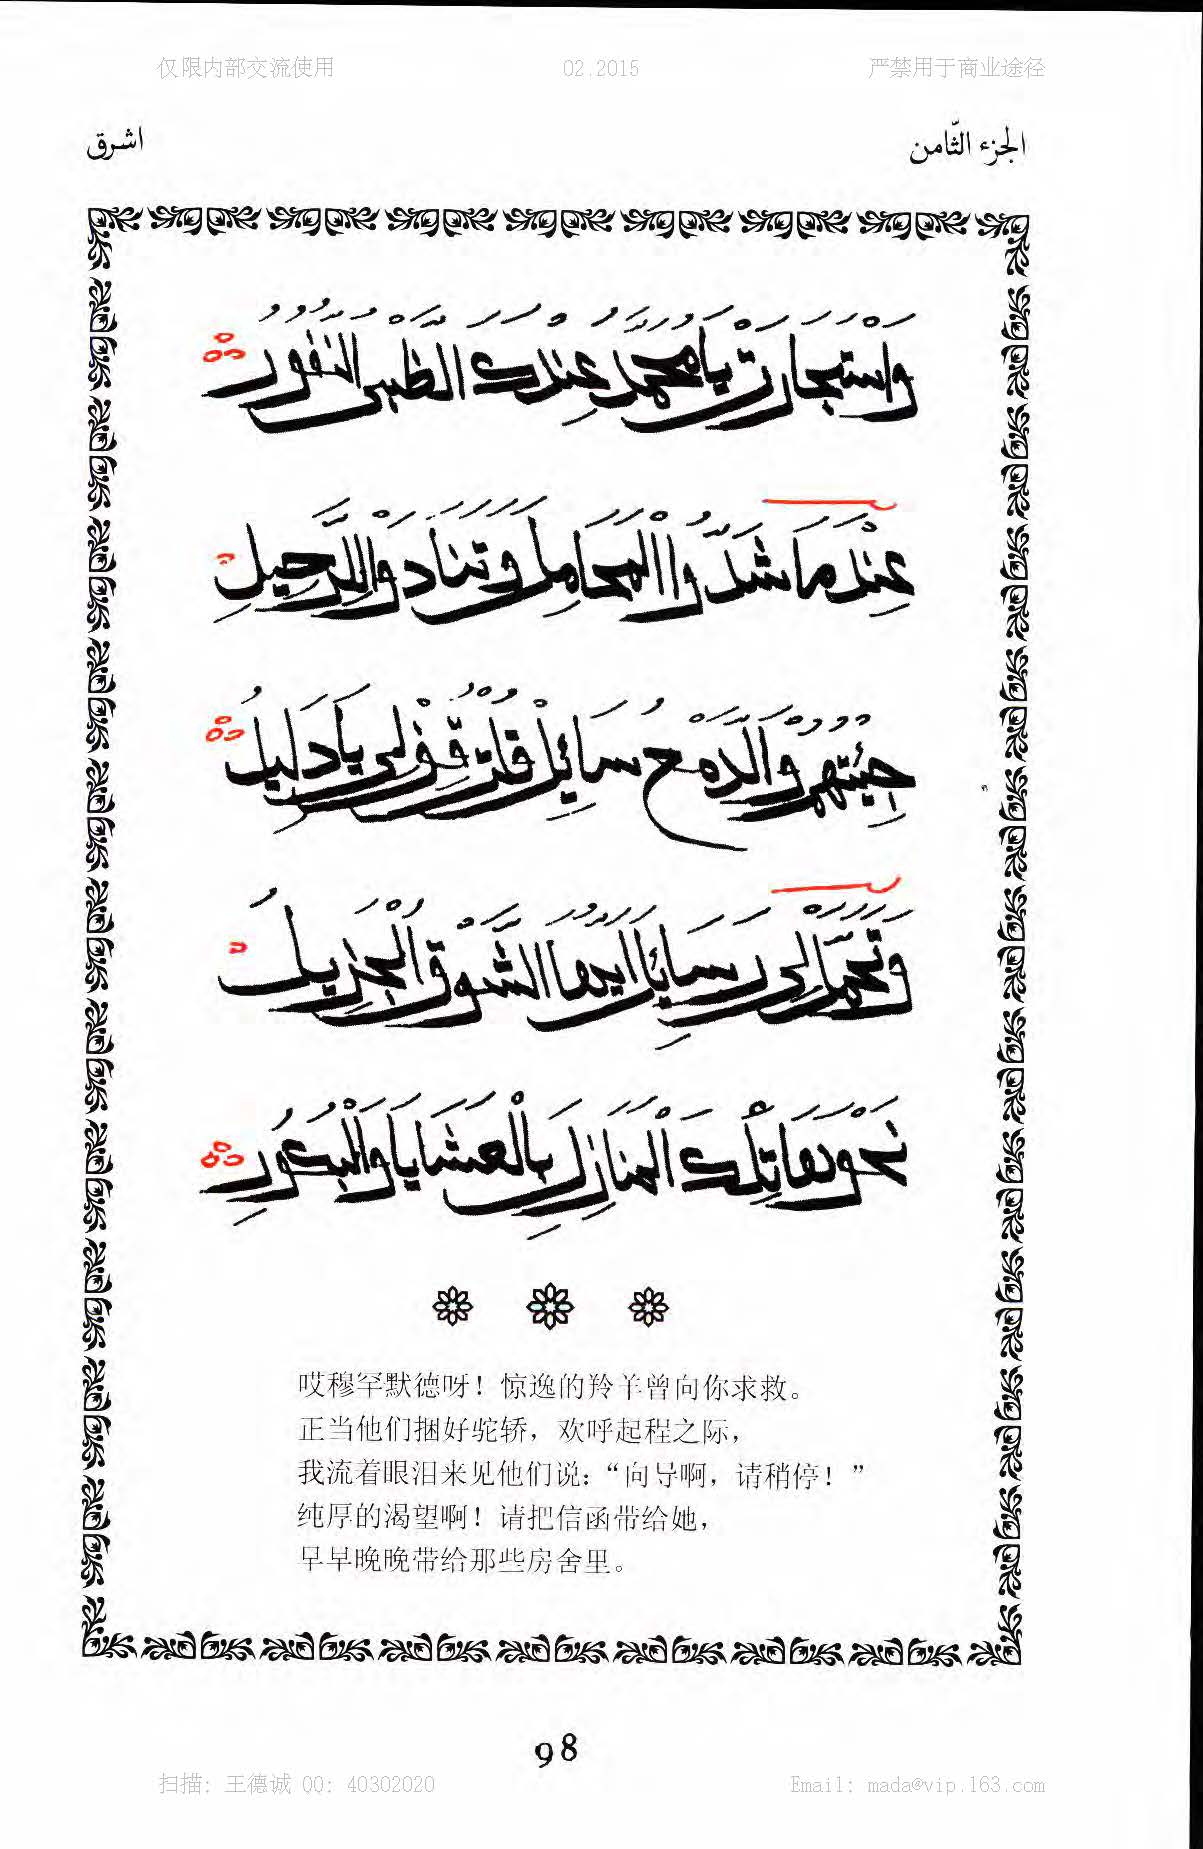 仅限内部交流使用 02.2015 严禁用于商业途径
الجزء الثّامن اشرق
وَاسْتَجَارَتْ يَا مُحَمَّد عِنْدَكَ الظَّبْيُ النُّفُورُ
عِنْدَمَا شَدُّوا الْمَحَامِلَ وَتَنَادَوْا لِلرَّحِيلِ
جِئْتُهُمْ وَالدَّمْعُ سَائِلْ قُلْتُ قِفْ لِي يَا دَلِيلُ
وَتَحَمَّلْ لِي رَسَائِلَ أَيُّهَا الشَّوْقُ الْجَزِيلُ
نَحْوَ هَاتِيكَ الْمَنَازِلِ بِالْعَشَايَا وَالْبُكُورِ
哎穆罕默德呀！惊逸的羚羊曾向你求救。
正当他们捆好驼轿，欢呼起程之际，
我流着眼泪来见他们说：“向导啊，请稍停！”
纯厚的渴望啊！请把信函带给她，
早早晚晚带给那些房舍里。
98
扫描：王德诚 QQ：40302020 Email: mada@vip.163.com